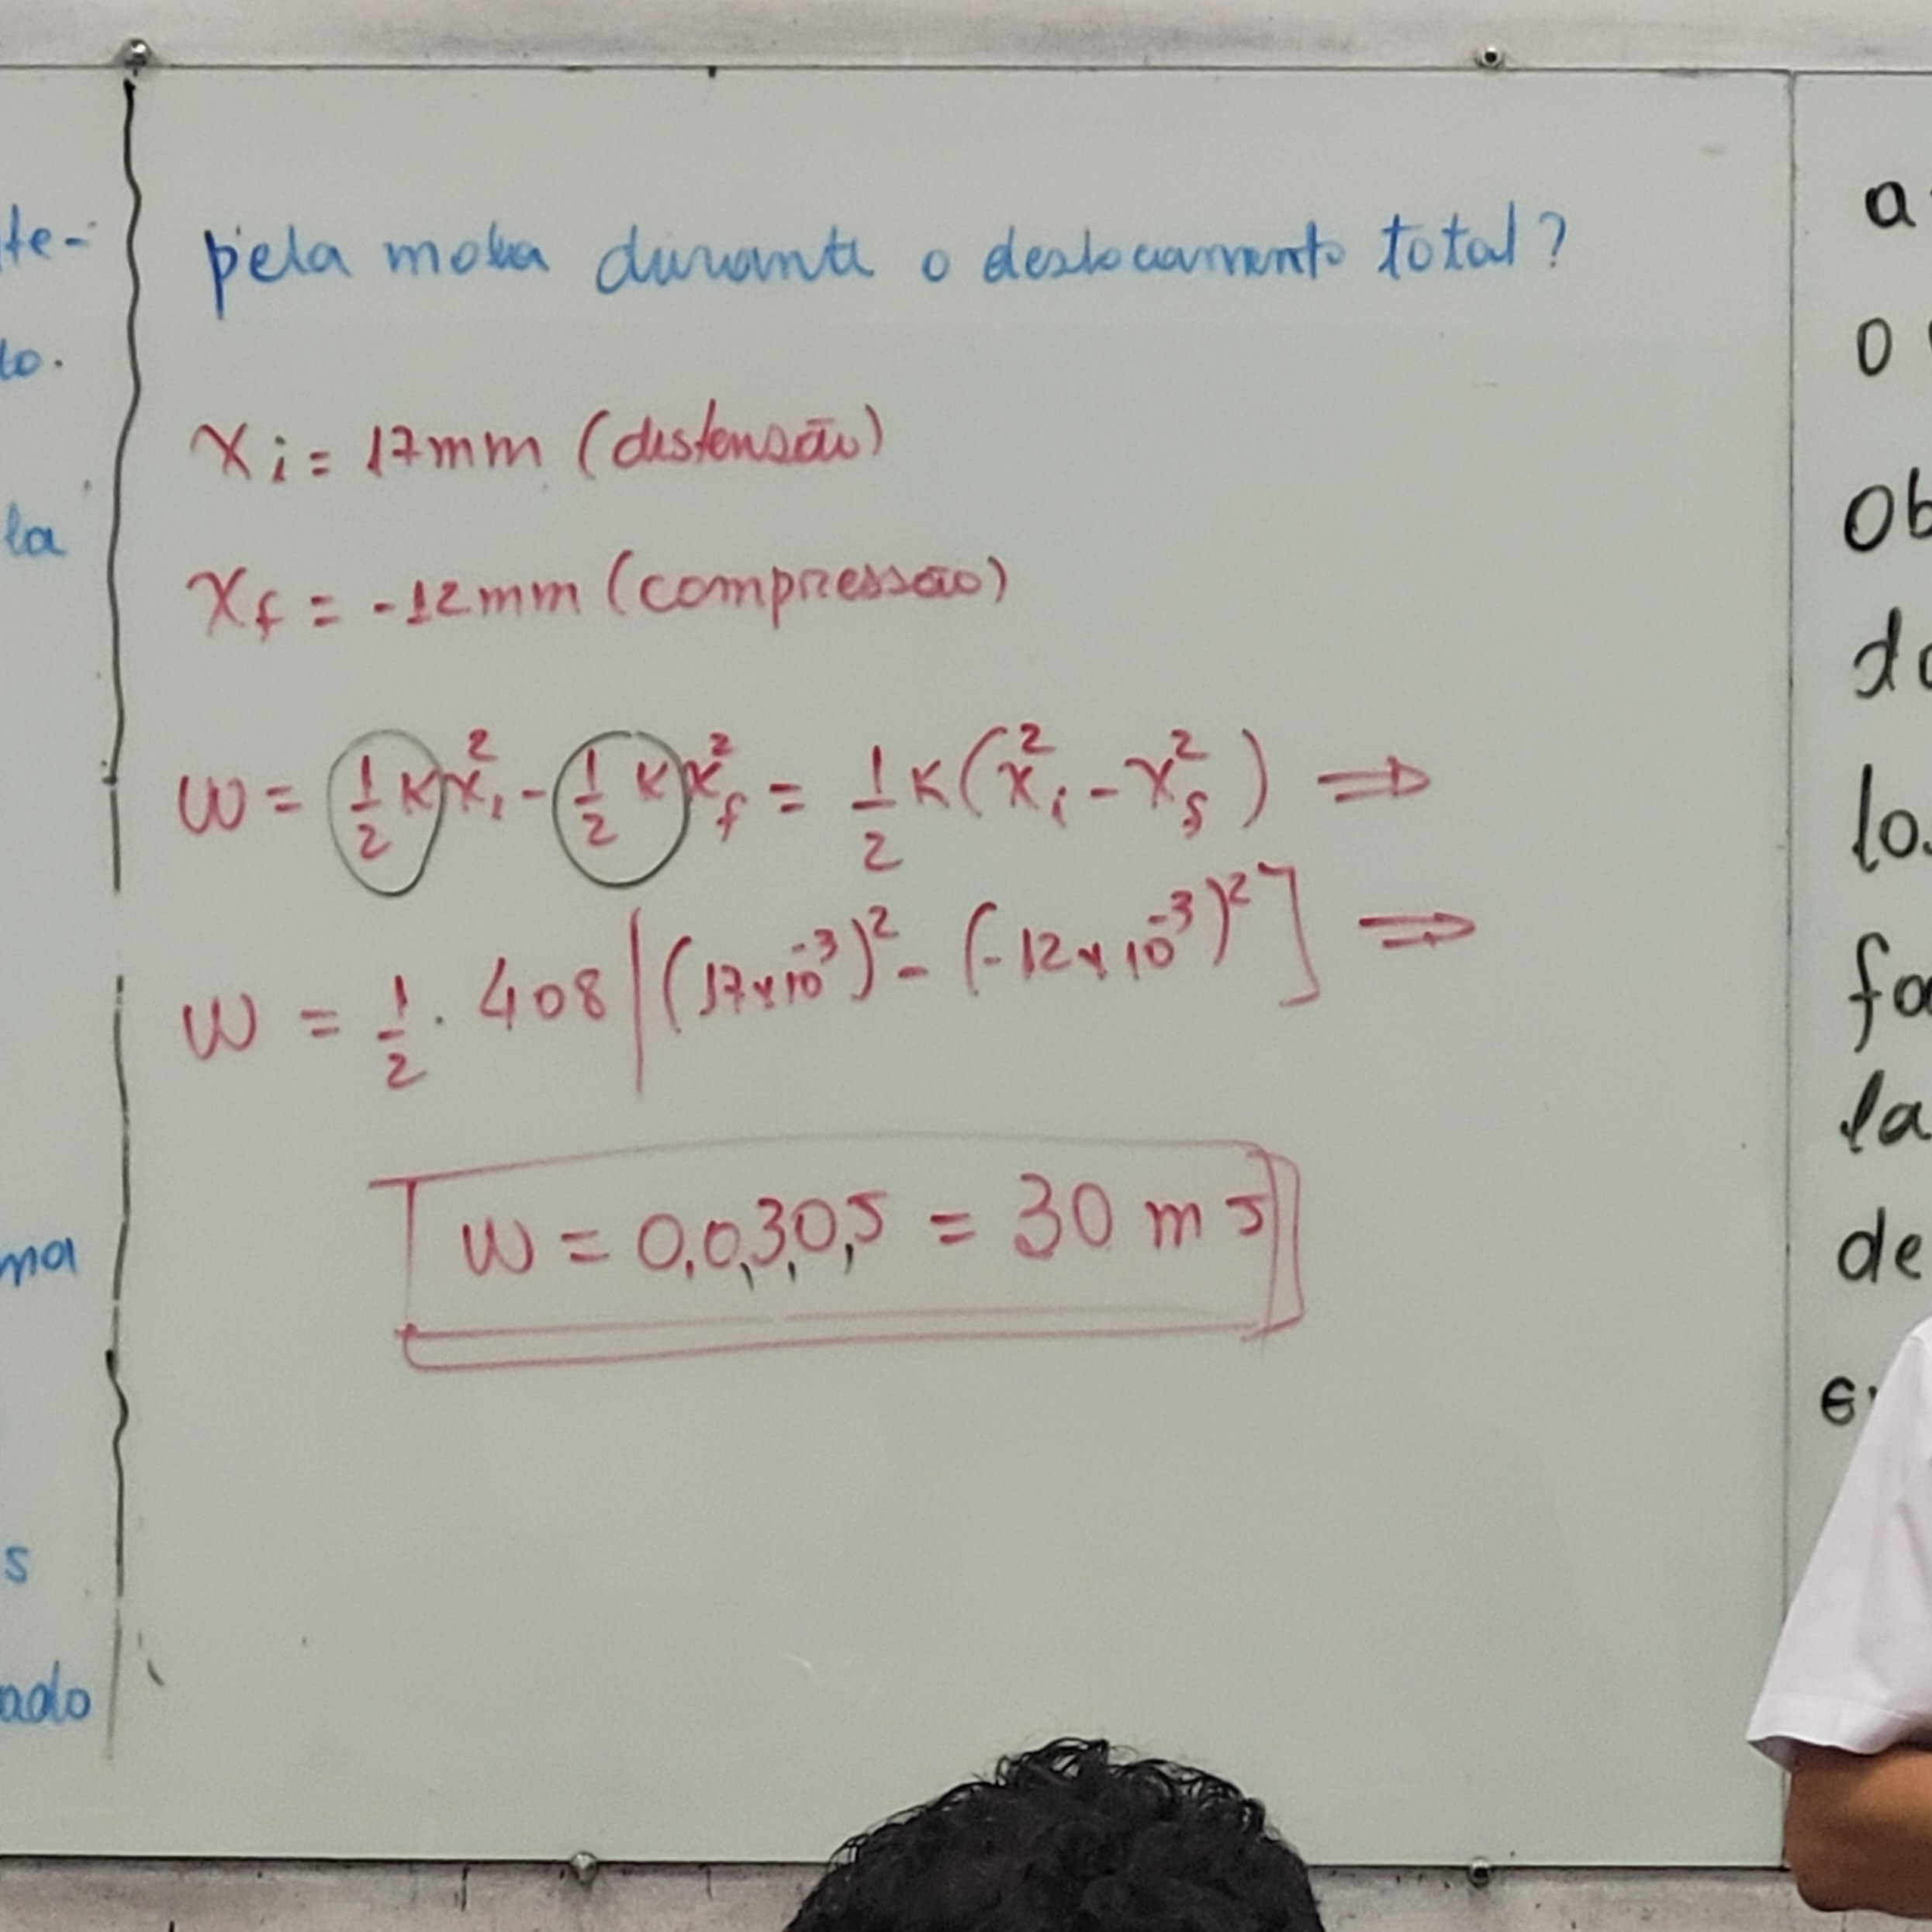 te-
pela mola durante o deslocamento total?
to.
xi = 17mm (distensão)
la
xf = -12mm (compressão)
W = 1/2 K xi² - 1/2 K xf² = 1/2 K (xi² - xf²) ⇒
W = 1/2 . 408 [(17x10⁻³)² - (-12x10⁻³)²] ⇒
W = 0,030J = 30 mJ
ma
s
ado
a
o
ob
do
lo
fo
la
de